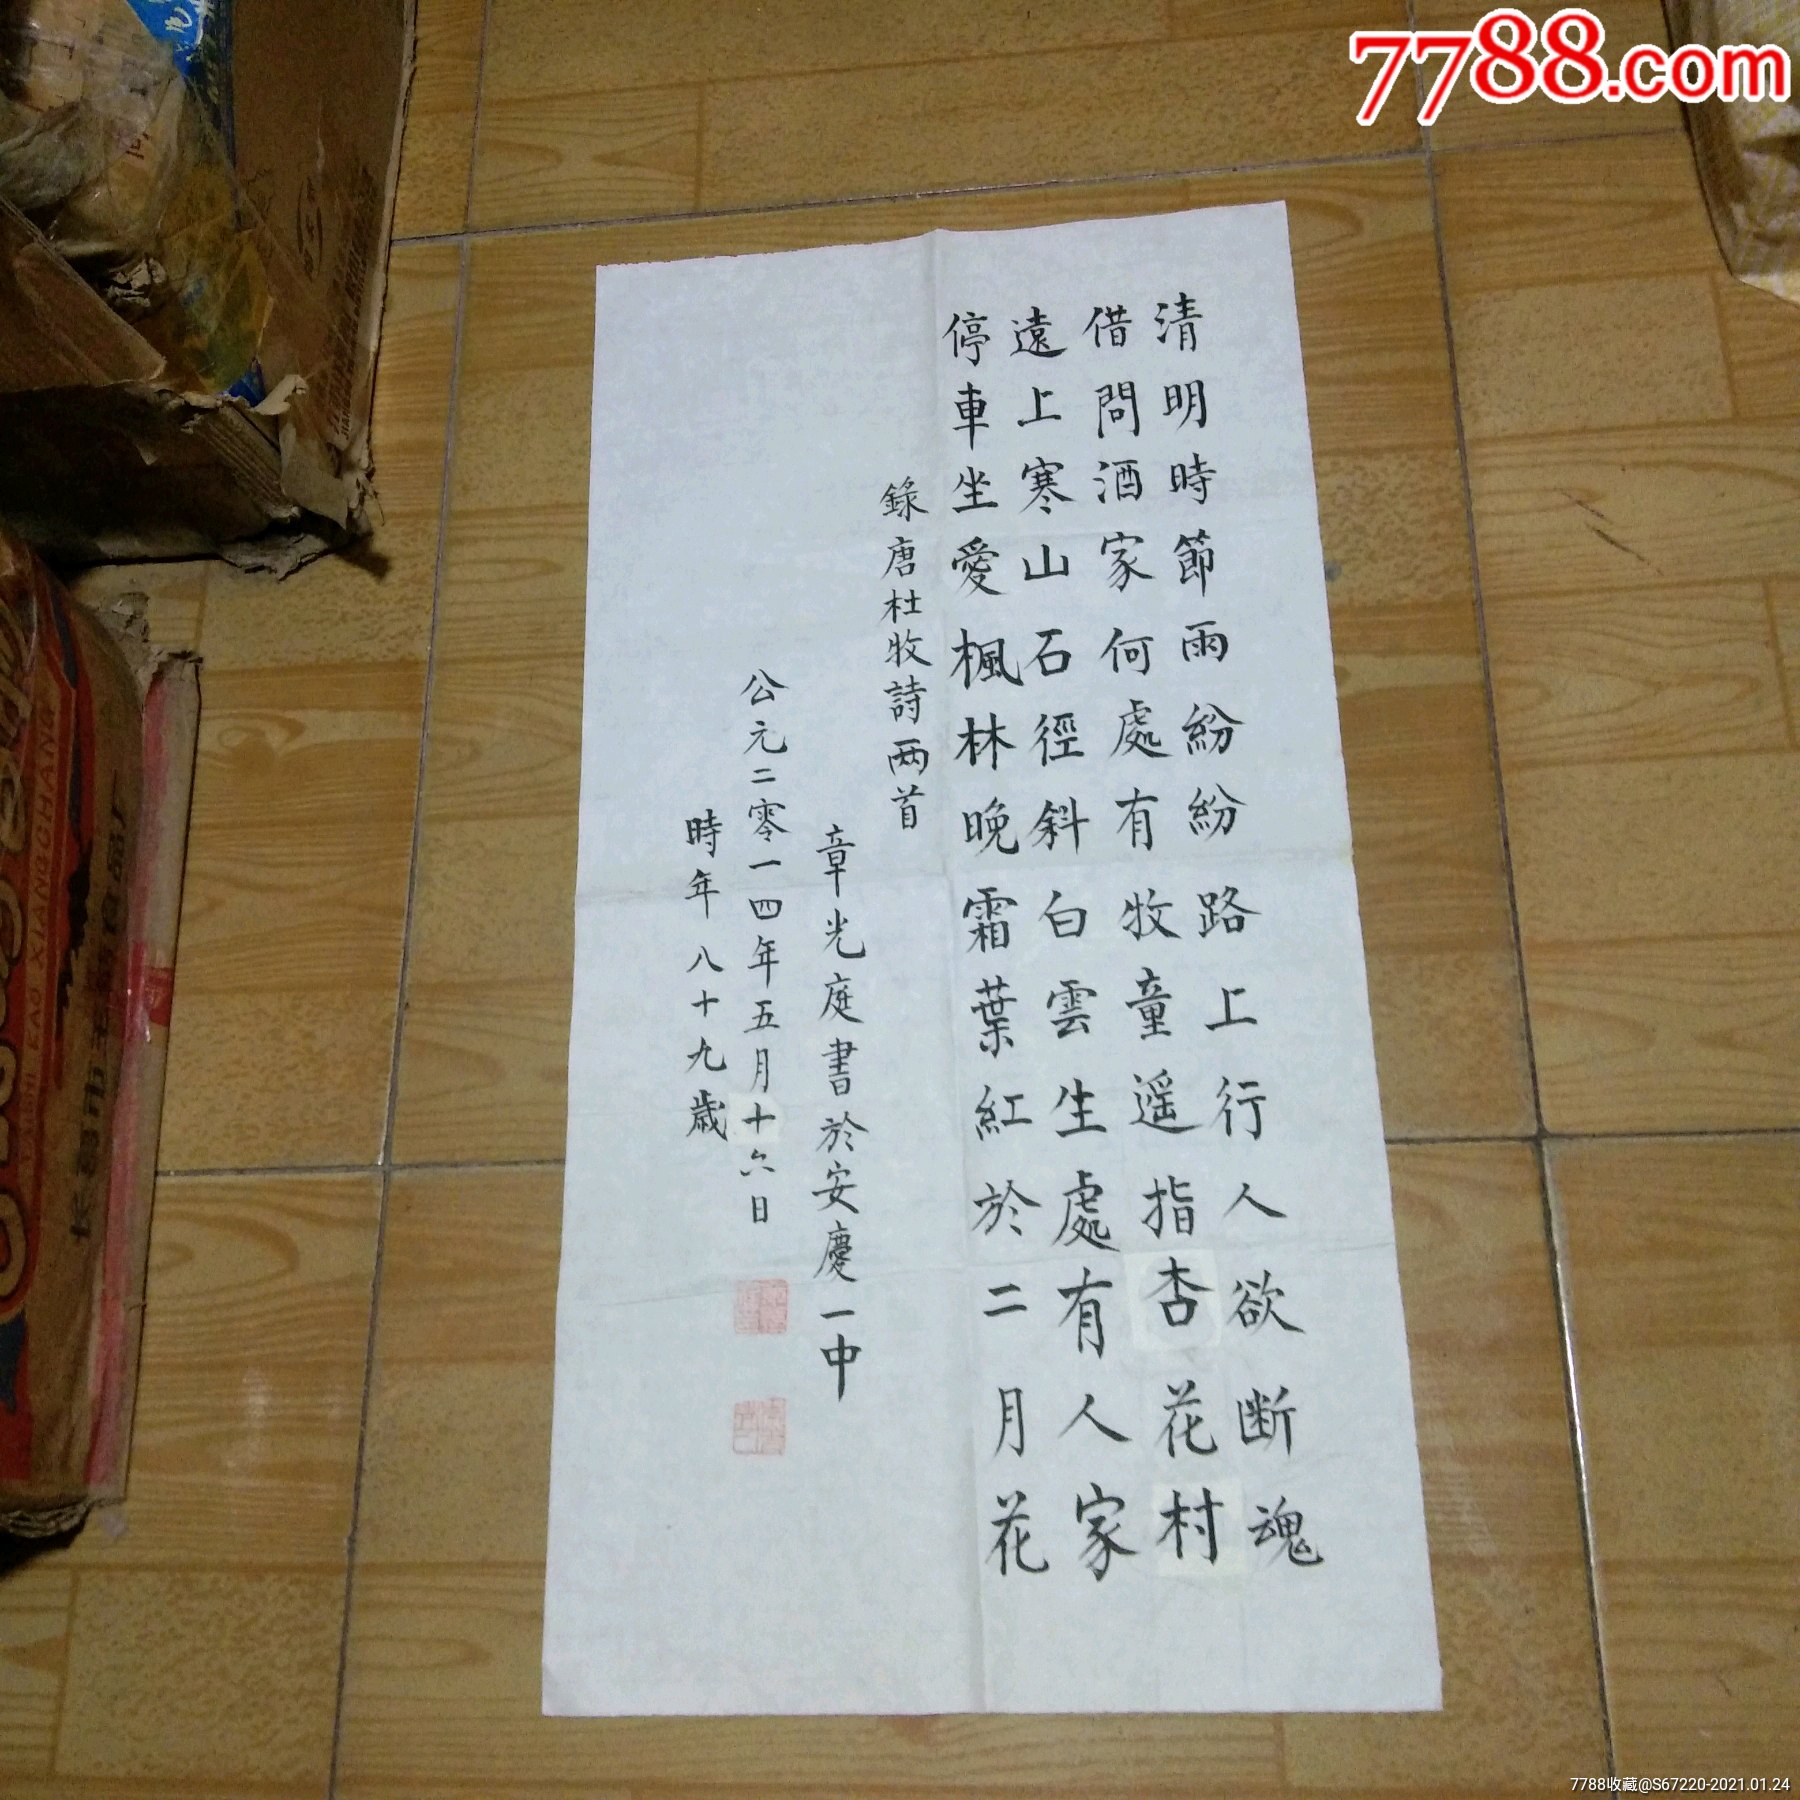 7788.com
清明時節雨紛紛路上行人欲断魂
借問酒家何處有牧童遥指杏花村
遠上寒山石徑斜白雲生處有人家
停車坐愛楓林晚霜葉紅於二月花
錄唐杜牧詩两首
章光庭書於安慶一中
公元二零一四年五月十六日
時年八十九歲
7788收藏@S67220-2021.01.24